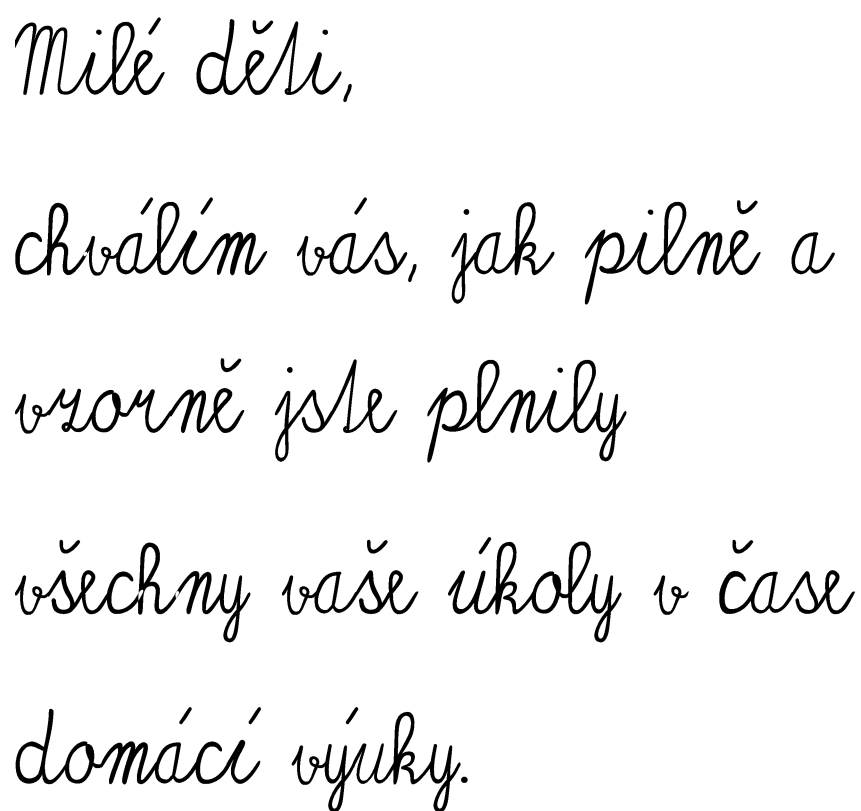 Milé děti,
chválím vás, jak pilně a
vzorně jste plnily
všechny vaše úkoly v čase
domácí výuky.